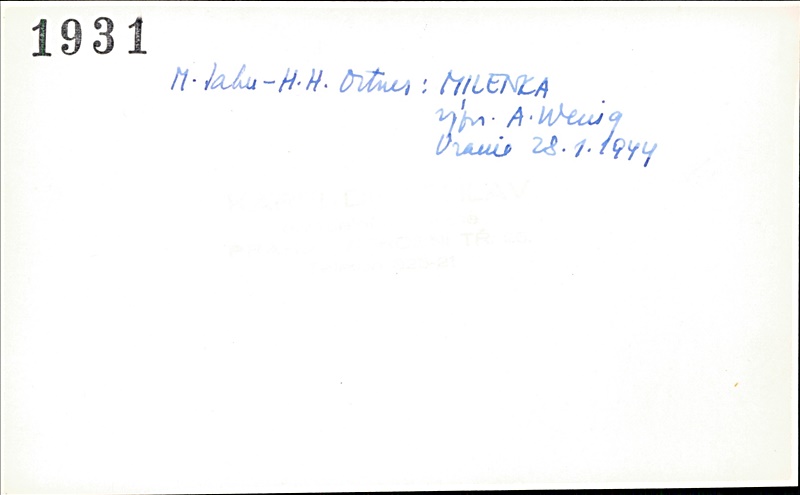 1931
M. Jahn - H. H. Ortner: MILENKA
výpr. A. Wenig
Uranie 28. 1. 1944